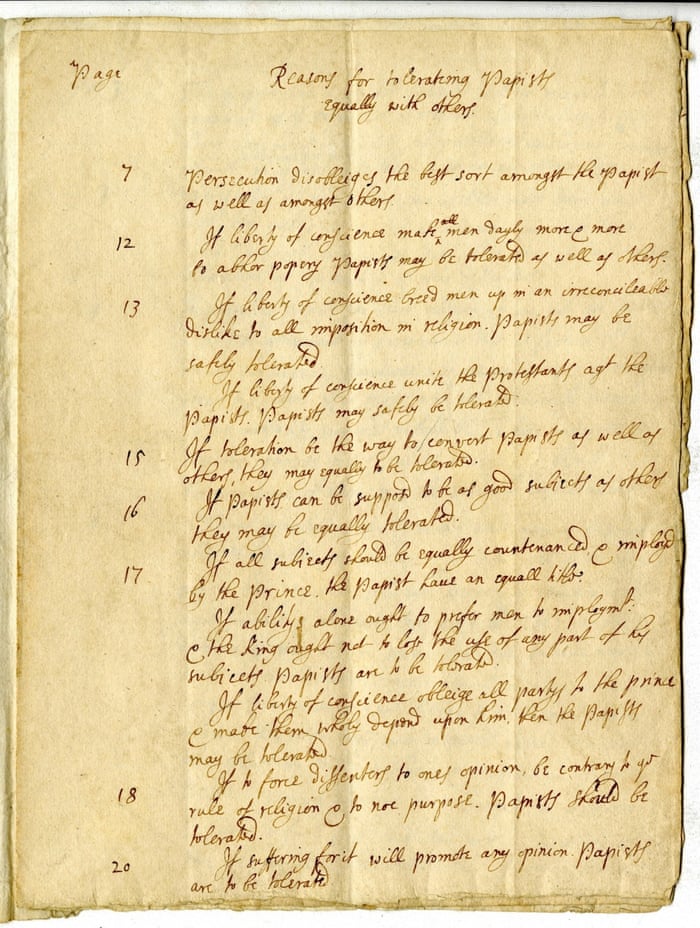 Page
Reasons for tolerateing Papists
equally with others.
7 Persecution disobleiges the best sort amongst the Papist
as well as amongst others.
12 If liberty of conscience make all men dayly more & more
to abhor popery Papists may be tolerated as well as others.
13 If liberty of conscience breed men up in an irreconcileable
dislike to all imposition in religion. Papists may be
safely tolerated
If liberty of conscience unite the Protestants agt the
Papists. Papists may safely be tolerated.
15 If toleration be the way to convert Papists as well as
others, they may equally to be tolerated.
16 If Papists can be supposd to be as good subiects as others
they may be equally tolerated.
17 If all subiects should be equally countenanced, & imployd
by the Prince. the Papist have an equall title.
If abilitys alone ought to prefer men to imploymt.
& the King ought not to lose the use of any part of his
subiects Papists are to be tolerated.
If liberty of conscience obleige all partys to the prince
& make them wholy depend upon him. then the Papists
may be tolerated
18 If to force dissenters to ones opinion, be contrary to ye
rule of religion & to noe purpose. Papists should be
tolerated.
20 If suffering for it will promote any opinion. Papists
are to be tolerated